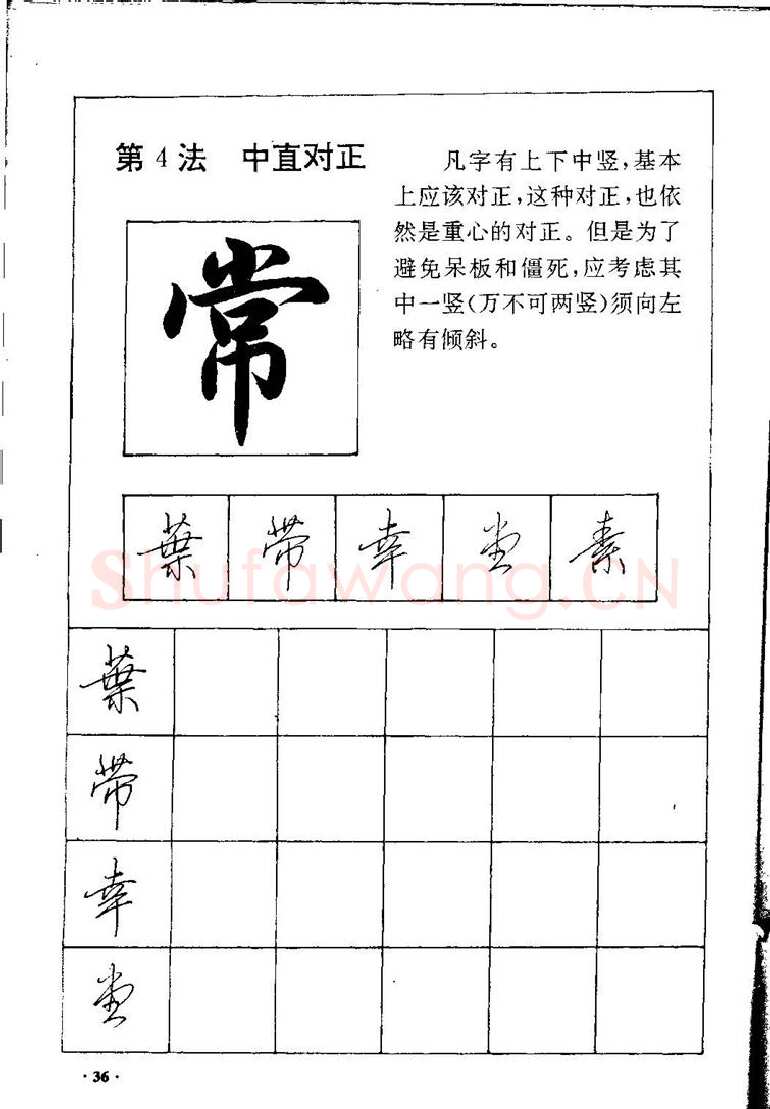 第4法 中直对正
凡字有上下中竖，基本
上应该对正，这种对正，也依
然是重心的对正。但是为了
避免呆板和僵死，应考虑其
中一竖（万不可两竖）须向左
略有倾斜。
常
葉 带 幸 堂 素
Shufawang.CN
葉
带
幸
堂
·36·